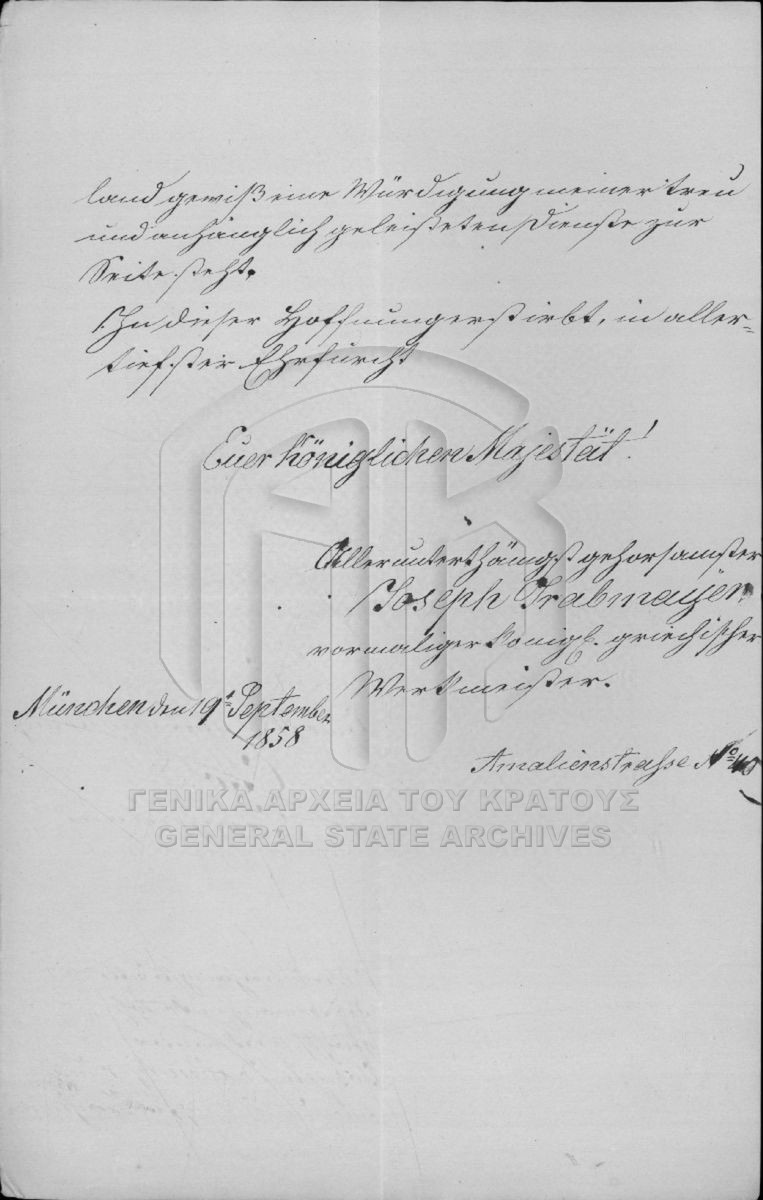 land gewiß eine Würdigung meiner treu
und anhänglich geleisteten Dienste zur
Seite steht.
In dieser Hoffnung erstirbt, in aller-
tiefster Ehrfurcht
Euer Königlichen Majestät!
Allerunterthänigst gehorsamster
Joseph Trabmayer.
vormaliger königl. griechischer
Werkmeister.
München den 19t September
1858
Amalienstrasse No 40
ΓΕΝΙΚΑ ΑΡΧΕΙΑ ΤΟΥ ΚΡΑΤΟΥΣ
GENERAL STATE ARCHIVES